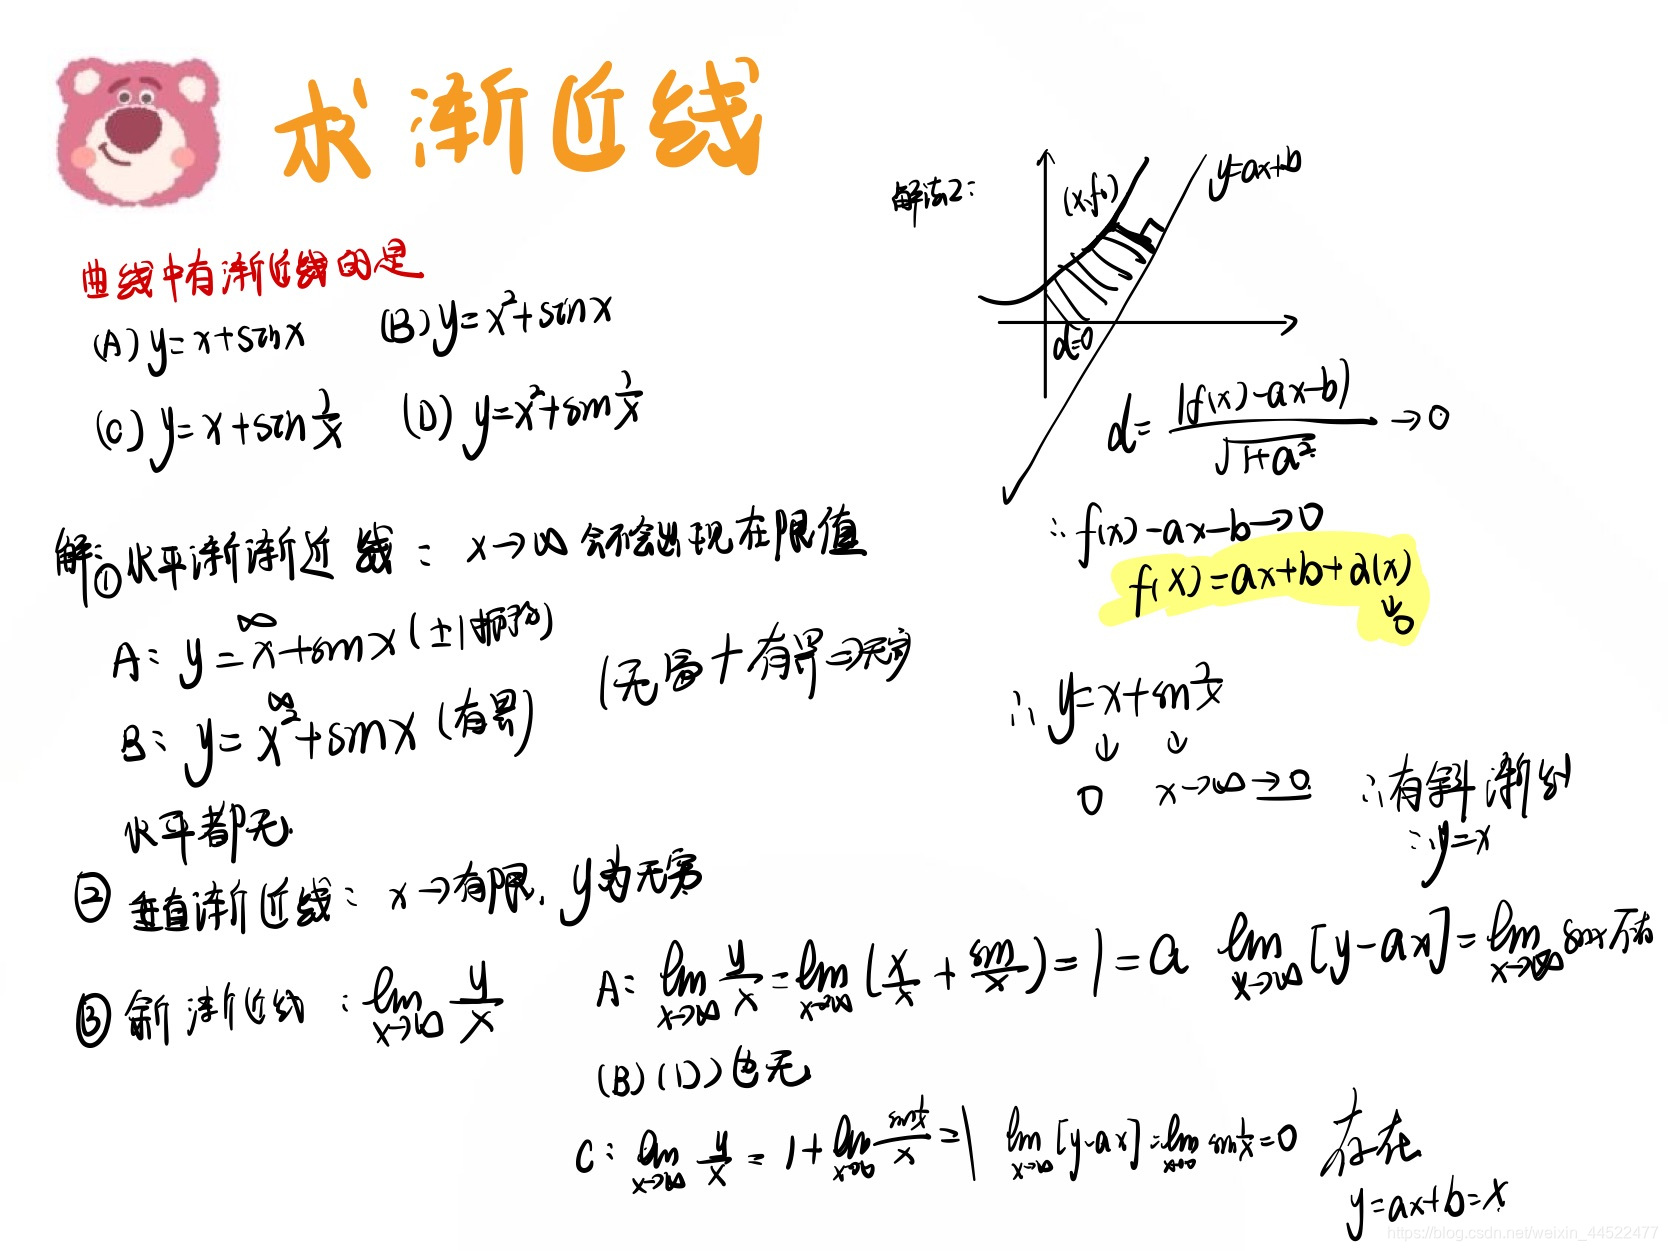 求渐近线
曲线中有渐近线的是
(A) y=x+sinx (B) y=x²+sinx
(C) y=x+sin1/x (D) y=x²+sin1/x
解:①水平渐渐近线: x→∞ 会不会出现在限值
A: y=x+sinx (±1 )
∞
B: y=x²+sinx (有界)
∞
(无穷+有界=>无穷)
水平都无
② 垂直渐近线: x→有限, y为无穷
③ 斜渐近线: lim x→∞ y/x
A: lim x→∞ y/x = lim x→∞ (x/x + sin/x) = 1 = a lim x→∞ [y-ax] = lim x→∞ sinx不存
(B) (D) 也无
C: lim x→∞ y/x = 1+ lim x→∞ sin1/x / x = 1 lim x→∞ [y-ax] = lim x→∞ sin1/x = 0 存在
y=ax+b=x
解法2:
(x,f())
y=ax+b
d=0
d= |f(x)-ax-b| / √1+a² →0
∴f(x)-ax-b→0
f(x)=ax+b+α(x)
↓
0
∴ y=x+sin1/x
↓ ↓
0 x→∞→0 ∴有斜渐线
∴y=x
https://blog.csdn.net/weixin_44522477